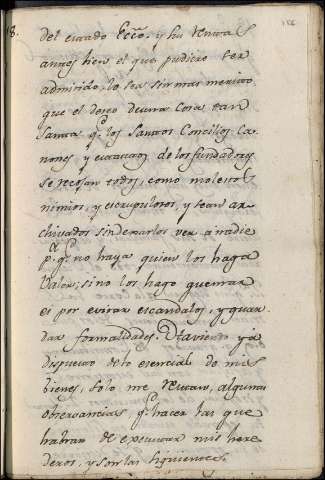 8.
del estado Ecc̃o. y su renta
annos bien el que pudiere ser
admirido lo sea sin mas merito
que el deseo de una Cosa tan
Santa q.e los Santos Concilios, Ca-
nones y de los fundadores
se recojan todos, como molestos
nimios, y escrupulosos, y sean ar-
chivados sin dexarlos ver a nadie
p.a q.e no haya quien los haga
Valer; sino los hago quemar
es por evitar escandalos, y guar-
dar formalidades. Haviendo ya
dispuesto de lo esencial de mis
bienes, solo me restan, algunas
observancias, q.e hacer las que
habran de executar mis here-
deros, y son las siguientes.